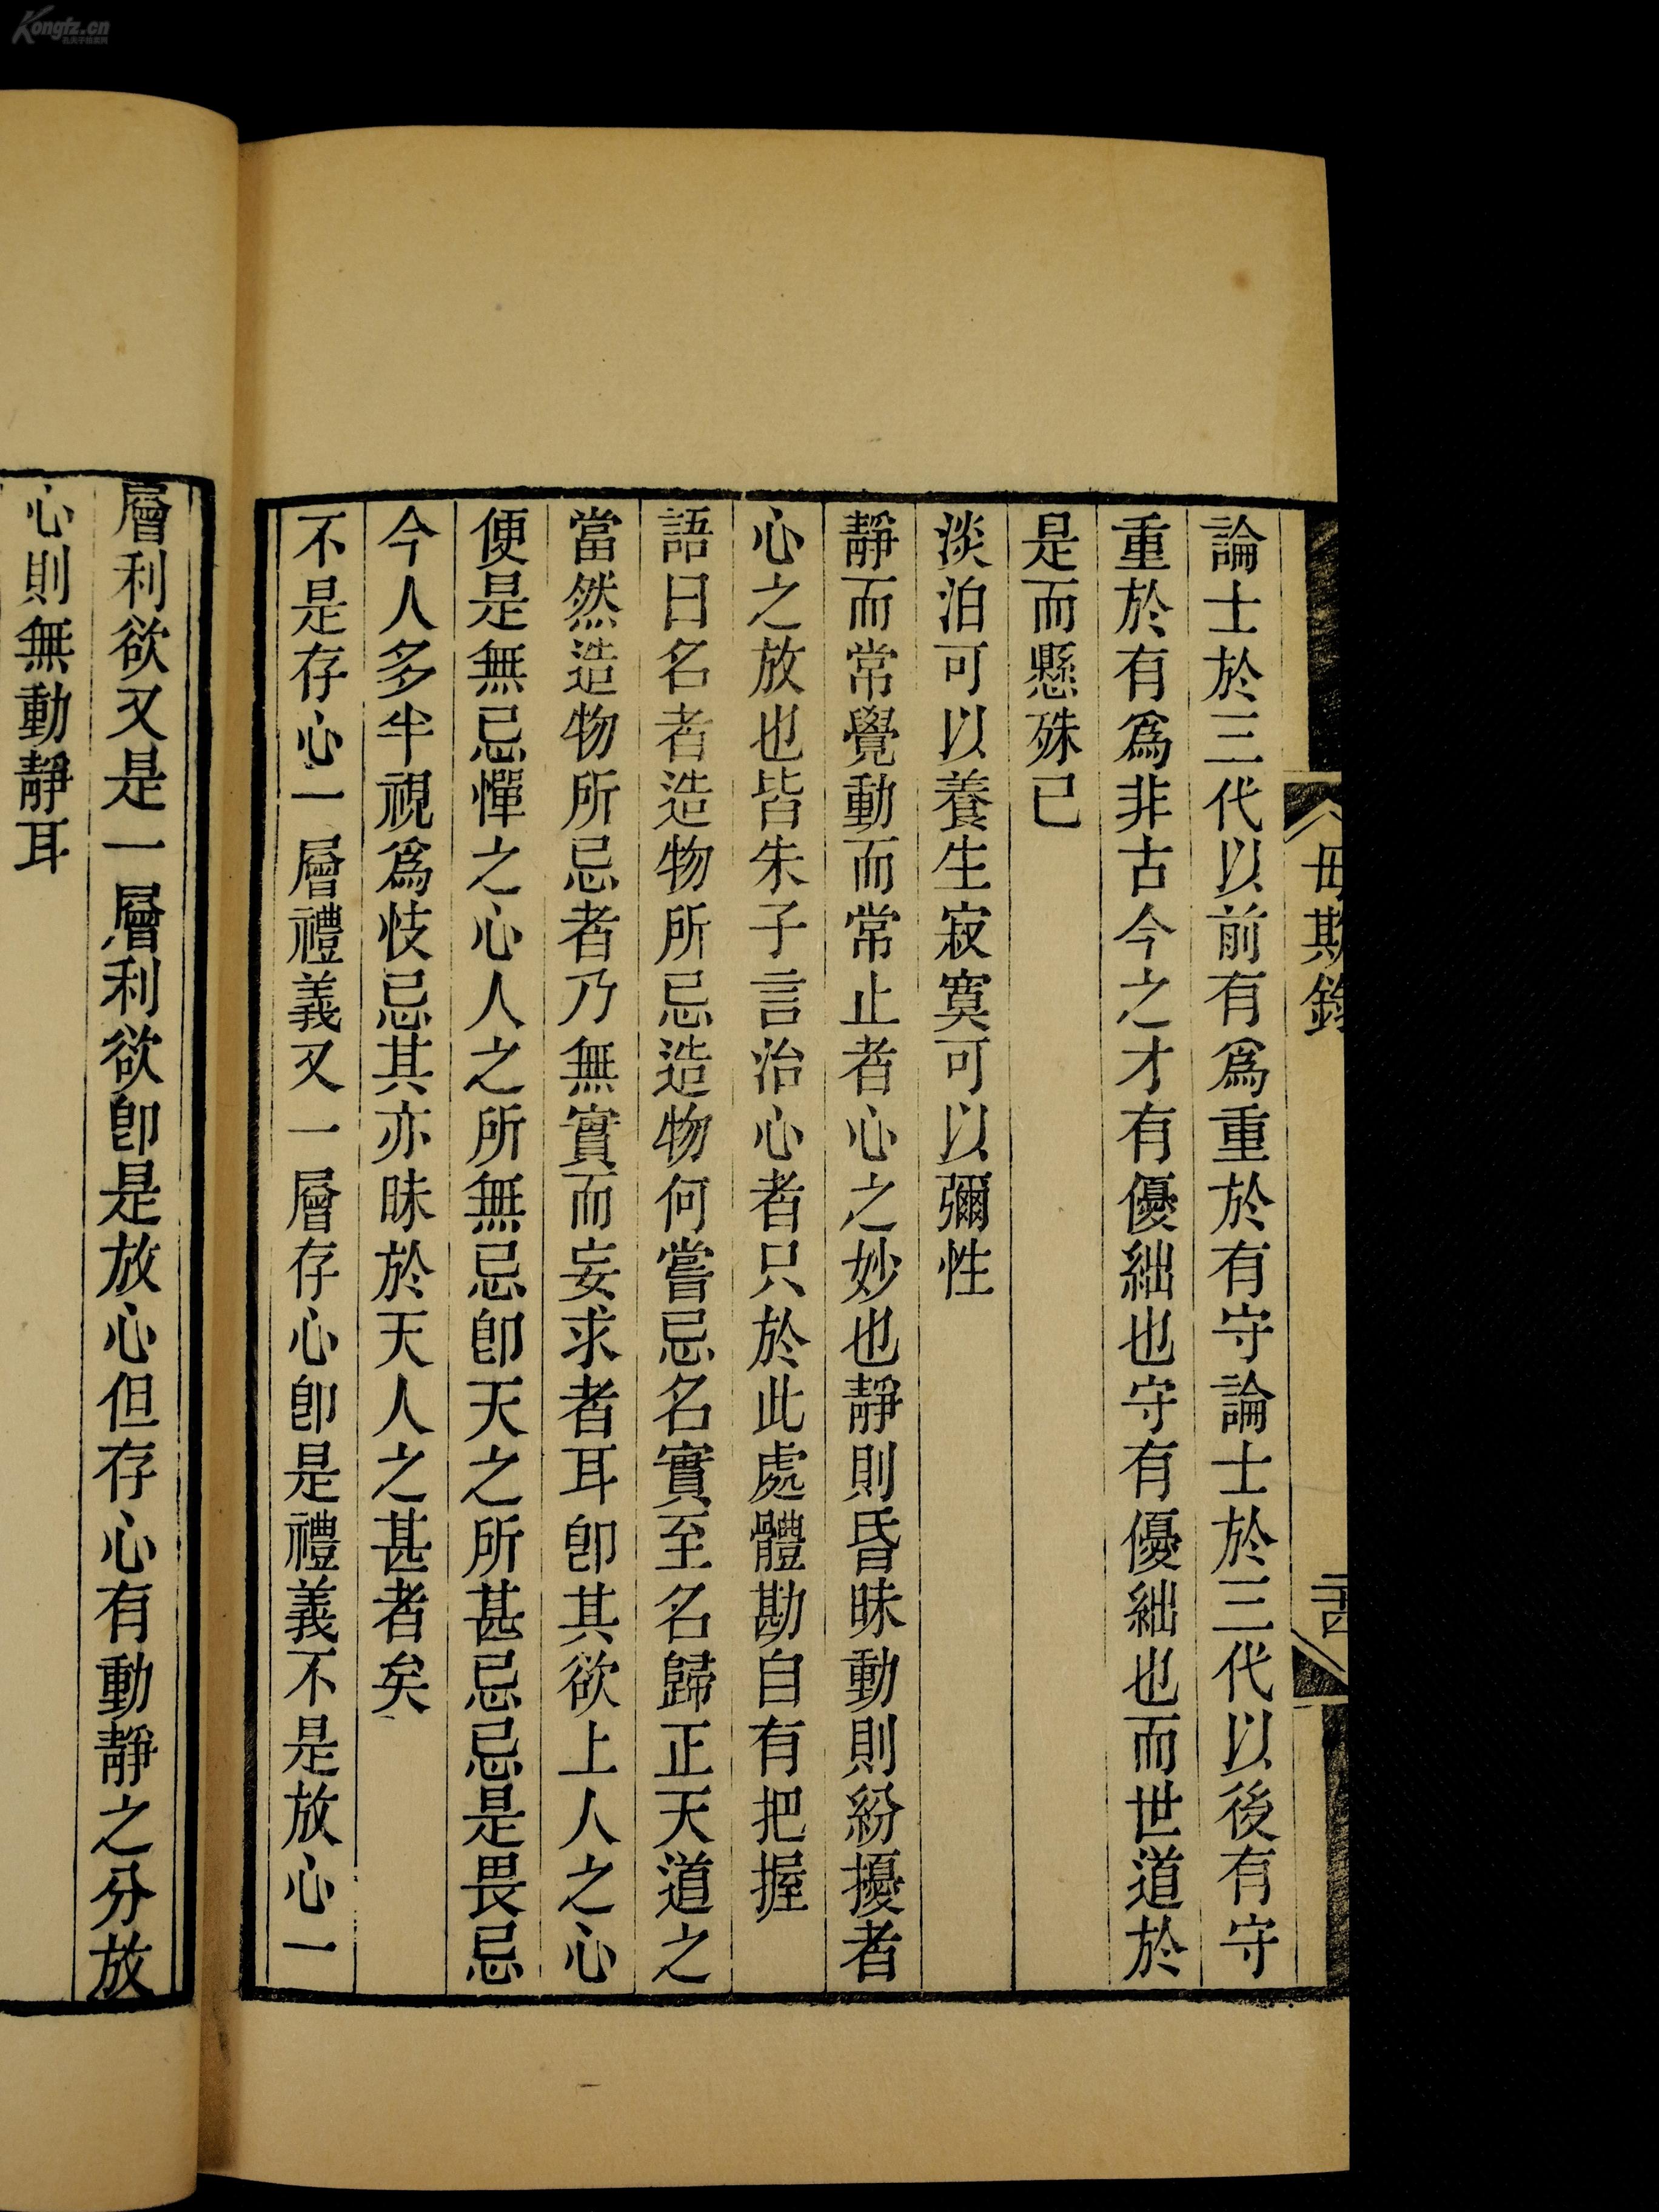 論士於三代以前有爲重於有守論士於三代以後有守
重於有爲非古今之才有優絀也守有優絀也而世道於
是而懸殊已
淡泊可以養生寂寞可以彌性
靜而常覺動而常止者心之妙也靜則昏昧動則紛擾者
心之放也皆朱子言治心者只於此處體勘自有把握
語曰名者造物所忌造物何嘗忌名實至名歸正天道之
當然造物所忌者乃無實而妄求者耳卽其欲上人之心
便是無忌憚之心人之所無忌卽天之所甚忌忌是畏忌
今人多半視爲忮忌其亦昧於天人之甚者矣
不是存心一層禮義又一層存心卽是禮義不是放心一
層利欲又是一層利欲卽是放心但存心有動靜之分放
心則無動靜耳
毋欺錄
Kongfz.cn